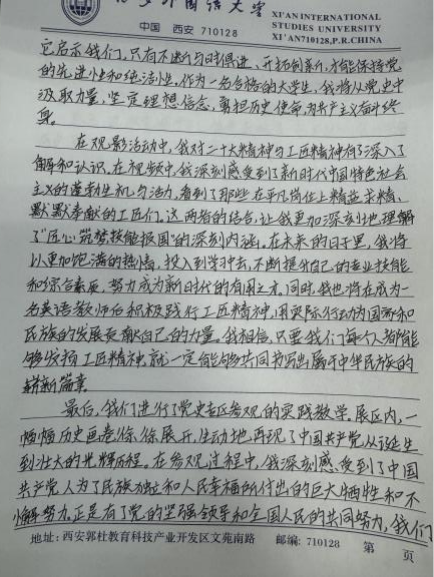 西安外国语大学 XI'AN INTERNATIONAL
STUDIES UNIVERSITY
中国 西安 710128 XI'AN710128,P.R.CHINA
它启示我们,只有不断与时俱进、开拓创新,才能保持党
的先进性和纯洁性。作为一名合格的大学生,我将从党史中
汲取力量,坚定理想信念,勇担历史使命,为共产主义奋斗终
身。
在观影活动中,我对二十大精神与工匠精神有了深入了
解和认识。在视频中,我深刻感受到了新时代中国特色社会
主义的蓬勃生机与活力,看到了那些在平凡岗位上精益求精、
默默奉献的工匠们。这两者的结合,让我更加深刻地理解
了"匠心筑梦技能报国"的深刻内涵。在未来的日子里,我将
以更加饱满的热情,投入到学习中去,不断提升自己的专业技能
和综合素质,努力成为新时代的有用之才。同时,我也将在成为一
名英语教师后积极践行工匠精神,用实际行动为国家和
民族的发展贡献自己的力量。我相信,只要我们每个人都能
够发扬工匠精神,就一定能够共同书写出属于中华民族的
崭新篇章。
最后,我们进行了党史专区参观的实践教学。展区内,一
幅幅历史画卷徐徐展开,生动地再现了中国共产党从诞生
到壮大的光辉历程。在参观过程中,我深刻感受到了中国
共产党人为了民族独立和人民幸福所付出的巨大牺牲和不
懈努力。正是有了党的坚强领导和全国人民的共同努力,我们
地址:西安郭杜教育科技产业开发区文苑南路 邮编:710128 第 页